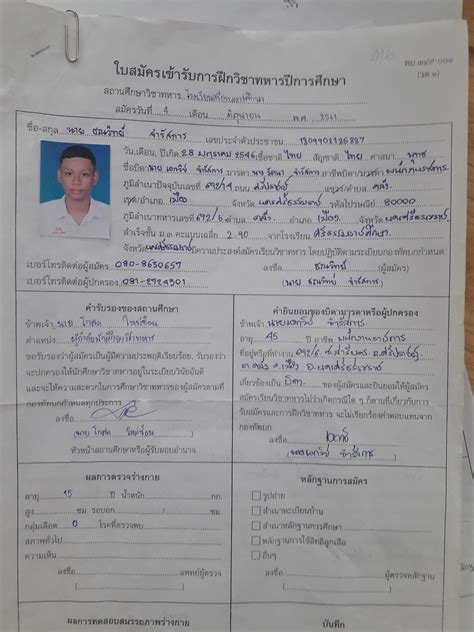 ทบ.๓๔๙-๐๐๑
(รด.๑)
ใบสมัครเข้ารับการฝึกวิชาทหารปีการศึกษา
สถานศึกษาวิชาทหาร
สมัครวันที่ 4 เดือน มิถุนายน พ.ศ. 2561
ชื่อ-สกุล นาย ชณวิทย์ จำรัสการ เลขประจำตัวประชาชน
วัน,เดือน, ปีเกิด 28 มกราคม 2546 เชื้อชาติ ไทย สัญชาติ ไทย ศาสนา พุทธ
ชื่อบิดา มารดา จำรัสการ อาชีพบิดา/มารดา พนักงานราชการ
ภูมิลำเนาปัจจุบันเลขที่ ถนน แขวง/ตำบล คลัง
เขต/อำเภอ เมือง จังหวัด นครศรีธรรมราช รหัสไปรษณีย์ 80000
ภูมิลำเนาทหารเลขที่ ตำบล คลัง อำเภอ เมือง จังหวัด นครศรีธรรมราช
สำเร็จชั้น ม.๓ คะแนนเฉลี่ย 2.90 จากโรงเรียน ศรีธรรมราชศึกษา
จังหวัด นครศรีธรรมราช มีความประสงค์สมัครเรียนวิชาทหาร โดยปฏิบัติตามระเบียบกองทัพบกกำหนด
เบอร์โทรติดต่อผู้สมัคร 080-8630657 ลงชื่อ ชณวิทย์ (ผู้สมัคร)
เบอร์โทรติดต่อผู้ปกครอง 081-2724301 (นาย ชณวิทย์ จำรัสการ)
คำรับรองของสถานศึกษา
ข้าพเจ้า นาย โกศล
ตำแหน่ง ผู้กำกับนักศึกษาวิชาทหาร
ขอรับรองว่าผู้สมัครเป็นผู้มีความประพฤติเรียบร้อย, รับรองว่า
จะปกครองให้นักศึกษาวิชาทหารอยู่ในระเบียบวินัยอันดี
และจะให้ความสะดวกในการฝึกวิชาทหารของผู้สมัครตามที่
กองทัพบกกำหนดทุกประการ
ลงชื่อ
(นาย โกศล
หัวหน้าสถานศึกษาหรือผู้รับมอบอำนาจ
คำยินยอมของบิดามารดาหรือผู้ปกครอง
ข้าพเจ้า จำรัสการ
อายุ 45 อาชีพ พนักงานราชการ
ที่อยู่หรือที่ทำงาน
ต.คลัง อ.เมือง จ.นครศรีธรรมราช
เกี่ยวข้องเป็น บิดา ของผู้สมัครและยินยอมให้ผู้สมัคร
สมัครเรียนวิชาทหารไม่ว่าเกิดกรณีใด ๆ ก็ตามที่เกี่ยวกับการ
รับสมัครและการฝึกวิชาทหาร จะไม่เรียกร้องค่าตอบแทนจาก
กองทัพบก
ลงชื่อ
จำรัสการ)
ผลการตรวจร่างกาย
อายุ 15 ปี น้ำหนัก กก.
สูง ซม. รอบอก / ซม.
กลุ่มเลือด O โรคที่ตรวจพบ
สภาพทั่วไป
ความเห็น
ลงชื่อ แพทย์ผู้ตรวจ
หลักฐานการสมัคร
รูปถ่าย
สำเนาทะเบียนบ้าน
สำเนาหลักฐานการศึกษา
หลักฐานการใช้สิทธิลูกเสือ
อื่นๆ
ลงชื่อ ผู้ตรวจหลักฐาน
ผลการทดสอบสมรรถภาพร่างกาย
บันทึก